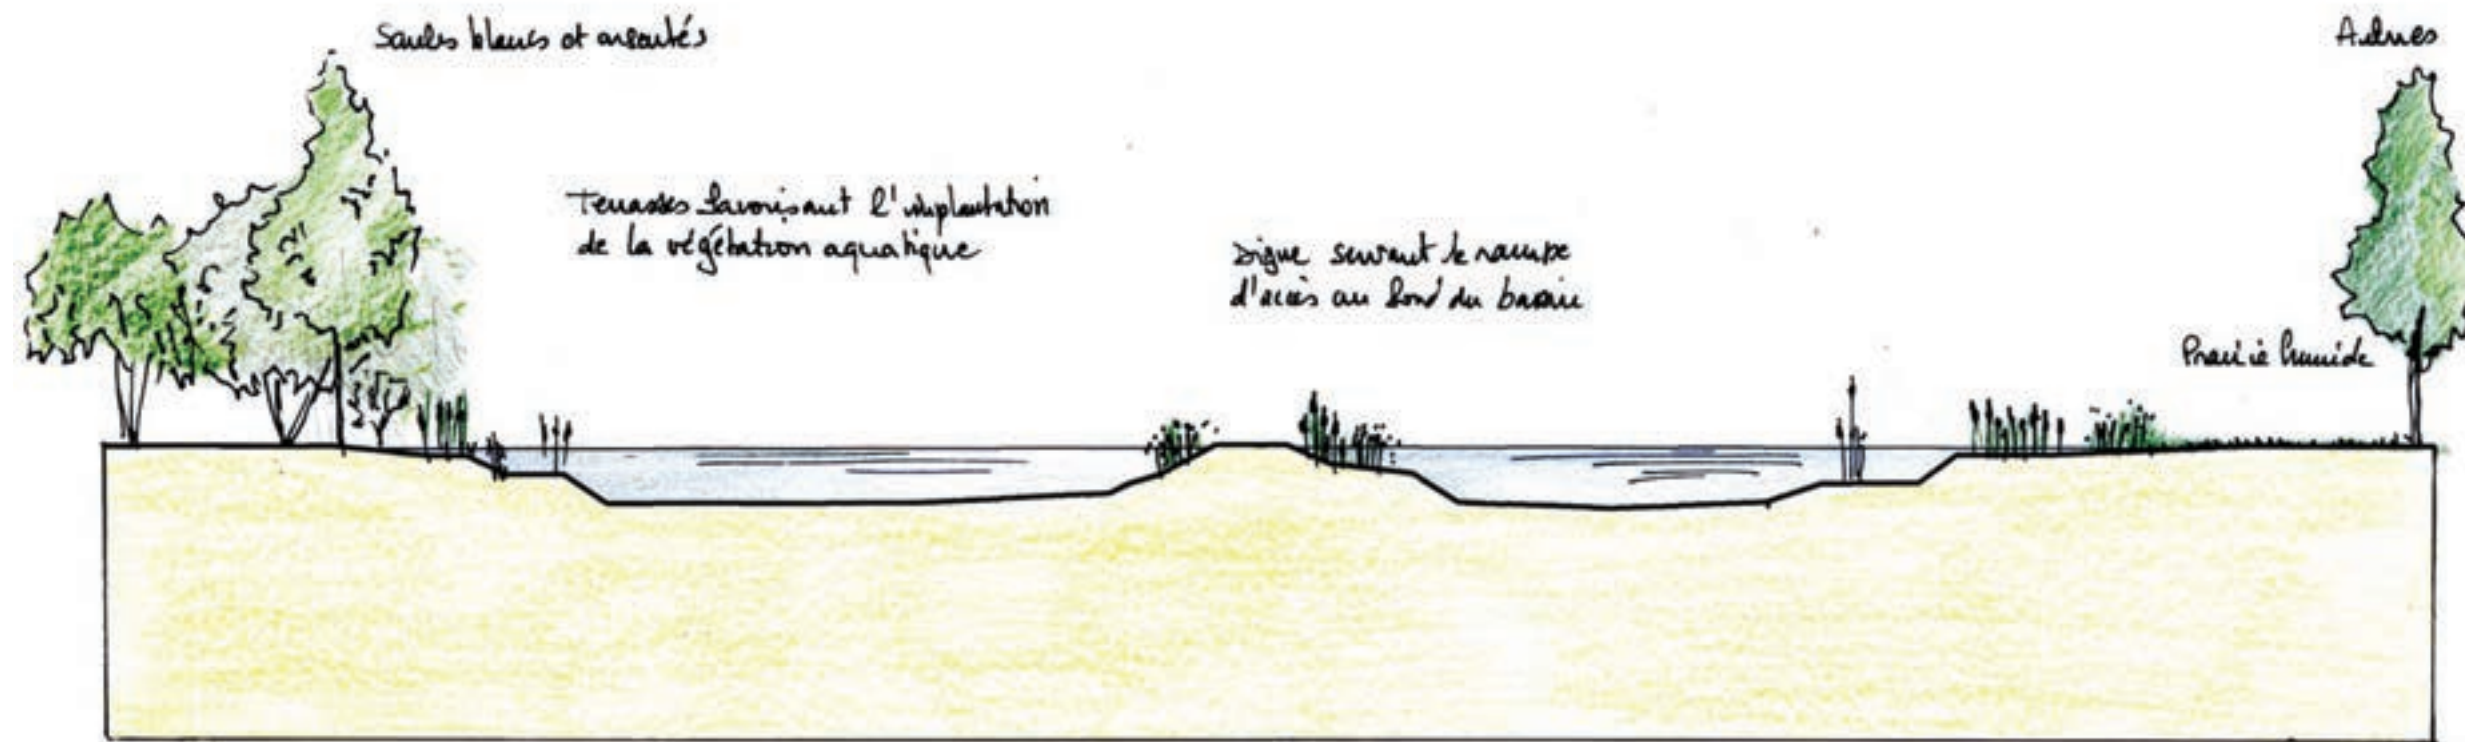 Saules blancs et marsaults
Aulnes
Terrasses favorisant l'implantation
de la végétation aquatique
Digue servant de rampe
d'accès au fond du bassin
Prairie humide